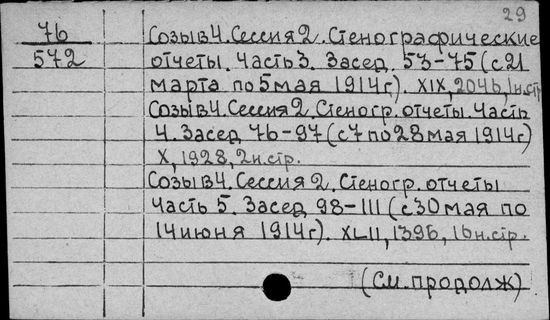 29
76
572
Созыв 4. Сессия 2. Стенографические
отчеты. Часть 3. Засед. 53-75 (с 21
марта по 5 мая 1914 г). XIX, 2046, 1 н.стр
Созыв 4. Сессия 2. Стеногр. отчеты. Часть
4. Засед 76-97 (с 7 по 28 мая 1914 г)
X, 1928, 2 н.стр.
Созыв 4. Сессия 2. Стеногр. отчеты
Часть 5. Засед 98-111 (с 30 мая по
14 июня 1914 г). XLII, 1396, 16 н.стр.
(См. продолж)